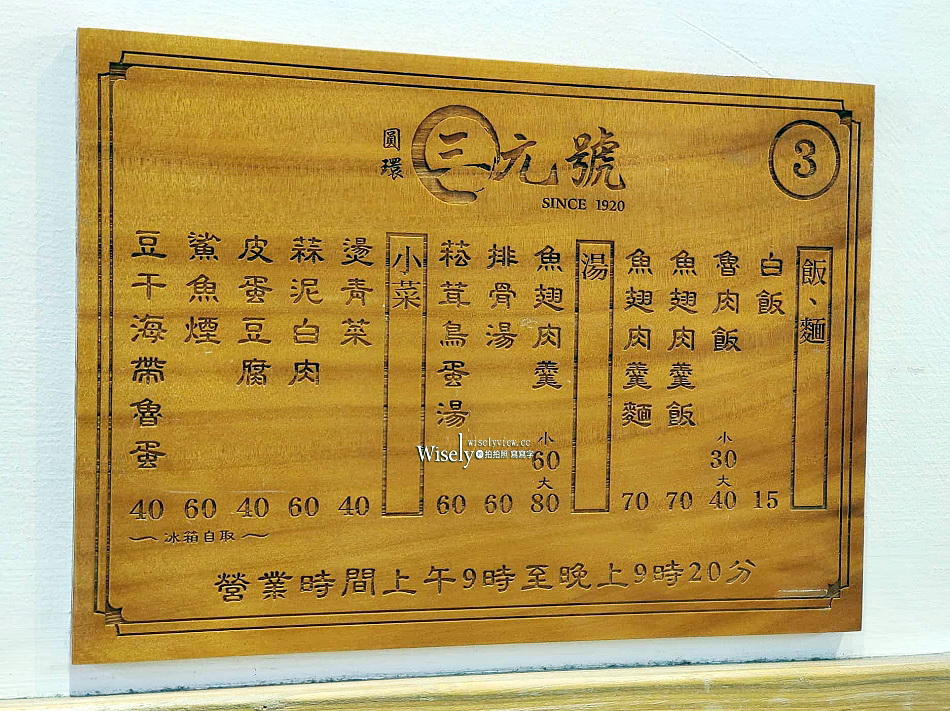 圓環 三元號
SINCE 1920
3
飯、麵
白飯 15
魯肉飯 小30 大40
魚翅肉羹飯 70
魚翅肉羹麵 70
湯
魚翅肉羹 小60 大80
排骨湯 60
菘茸鳥蛋湯 60
小菜
燙青菜 40
蒜泥白肉 60
皮蛋豆腐 40
鯊魚煙 60
豆干海帶魯蛋 40
冰箱自取
營業時間上午9時至晚上9時20分
wiselyview.cc
Wisely 拍拍照 寫寫字